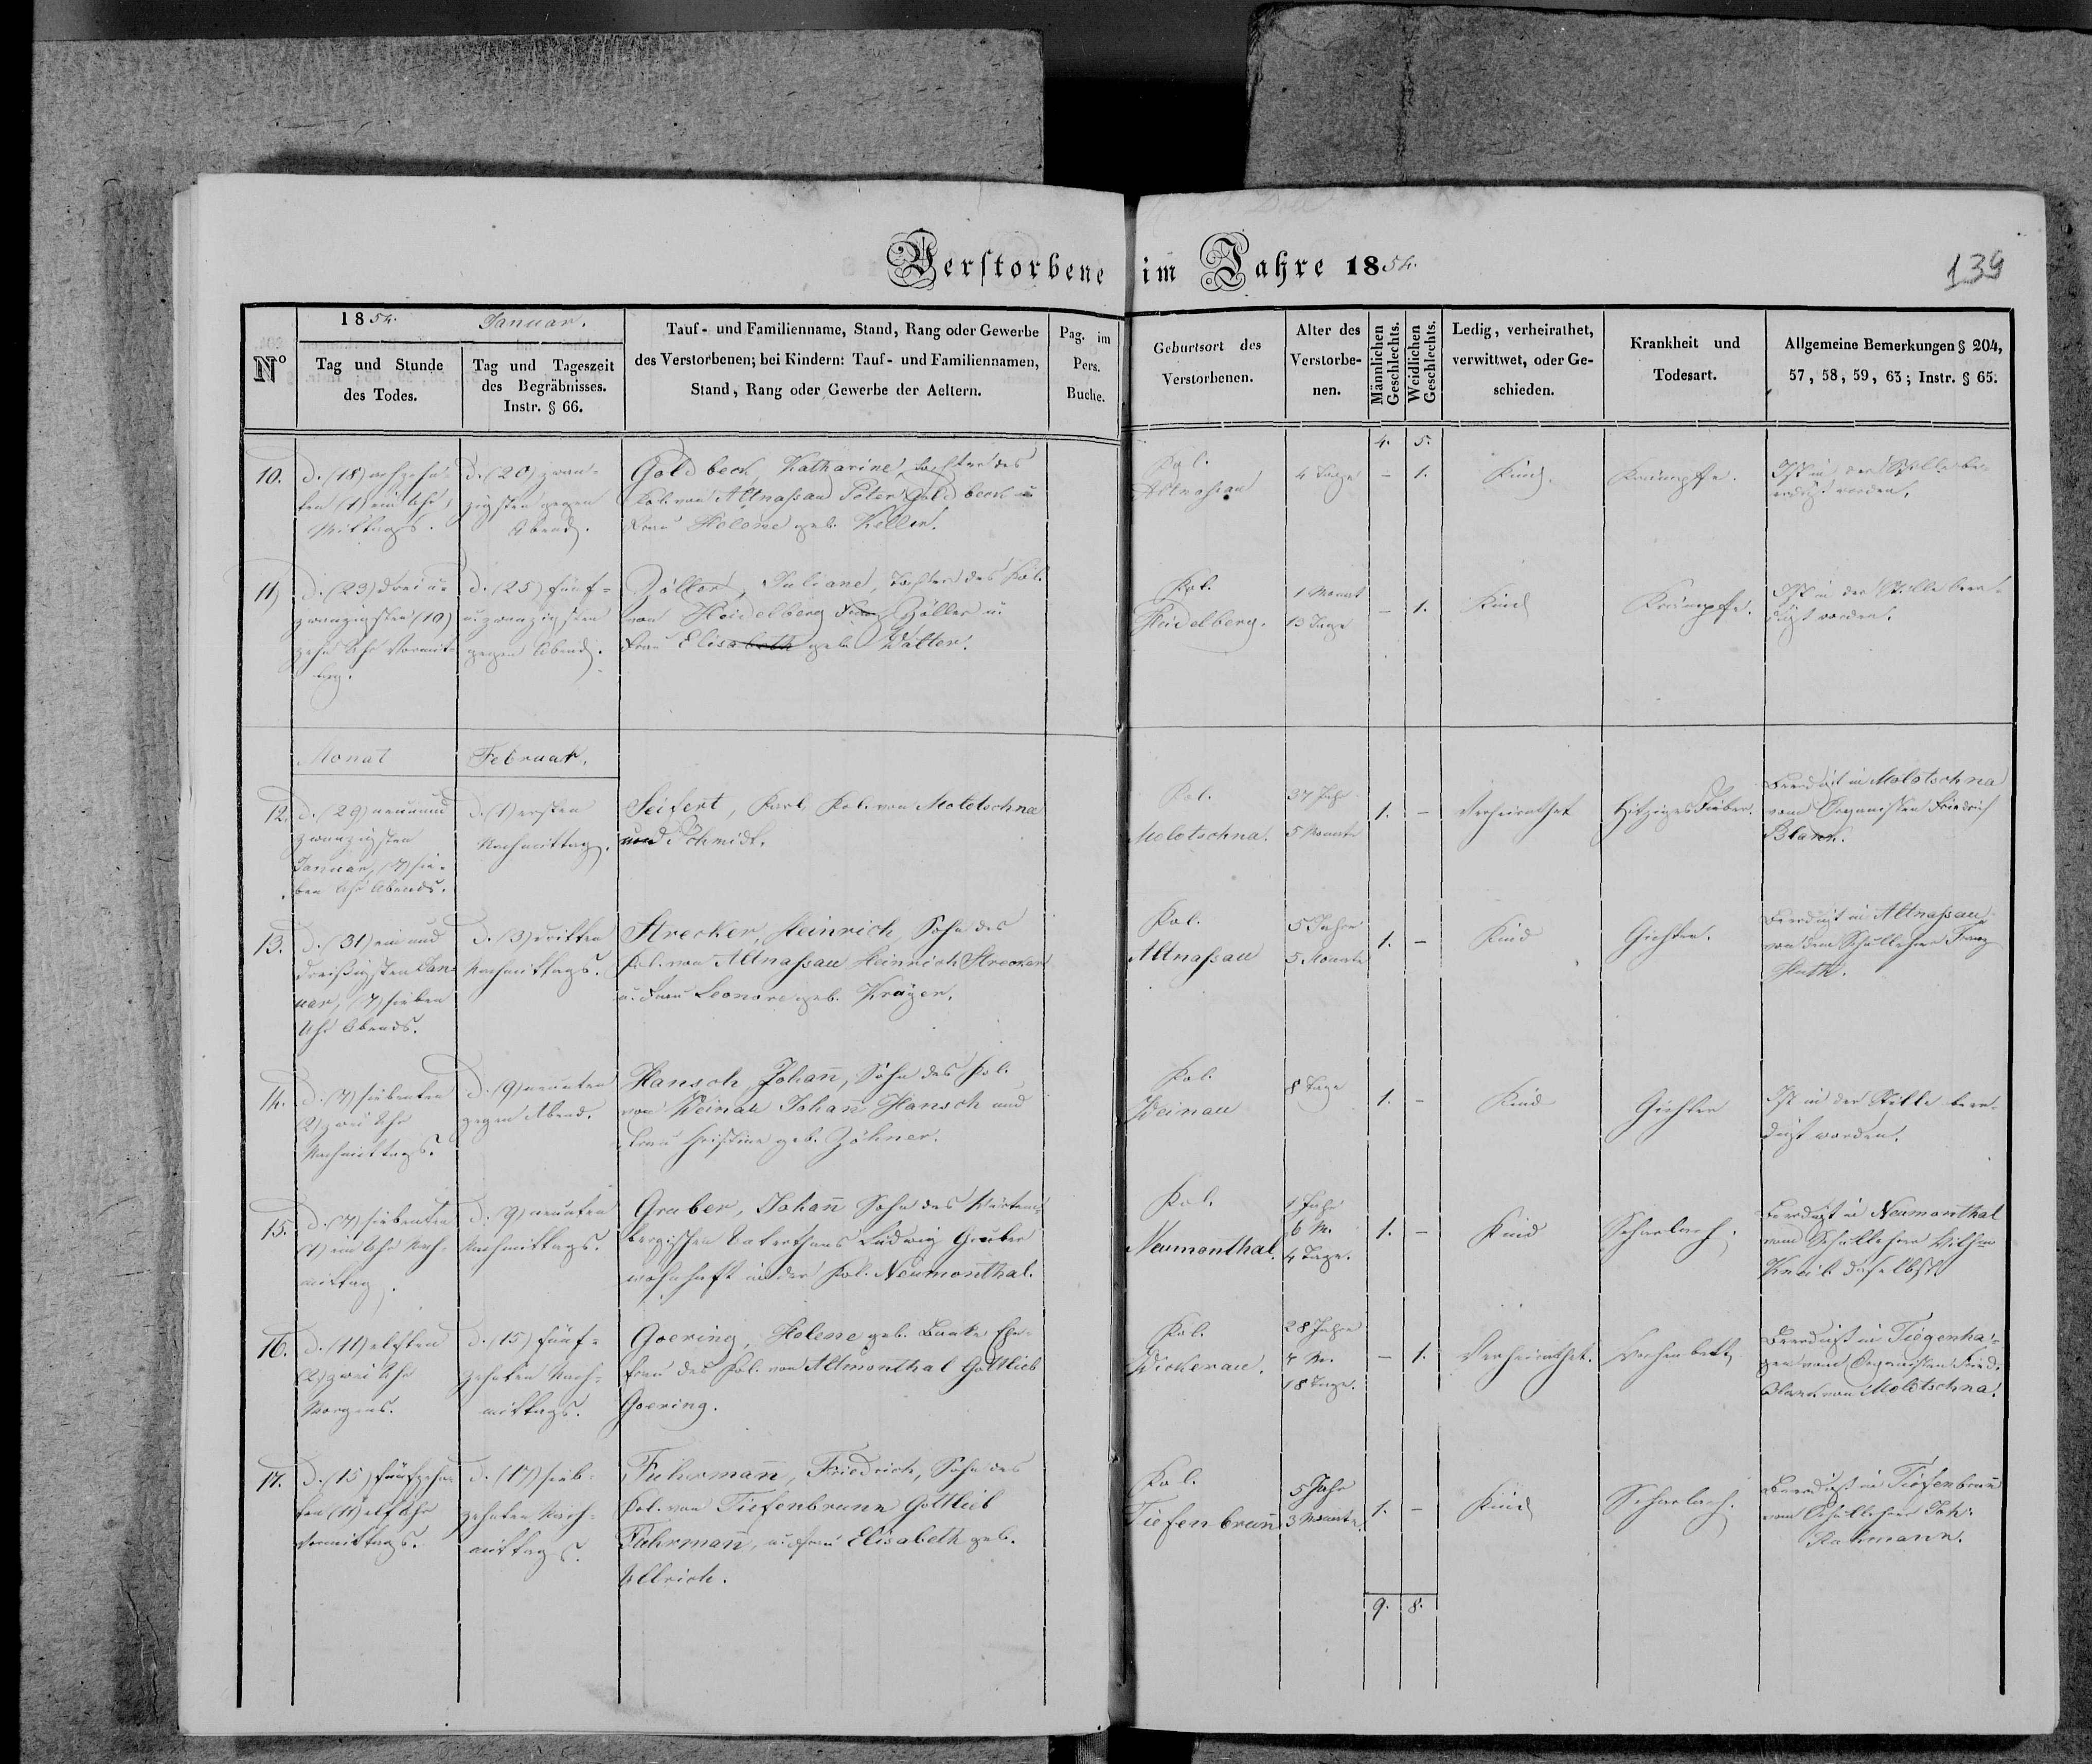 Verstorbene im Jahre 1854.
139
1854. Januar.
N° Tag und Stunde des Todes.
Tag und Tageszeit des Begräbnisses. Instr. § 66.
Tauf- und Familienname, Stand, Rang oder Gewerbe
des Verstorbenen; bei Kindern: Tauf- und Familiennamen,
Stand, Rang oder Gewerbe der Aeltern.
Pag. im Pers. Buche.
Geburtsort des Verstorbenen.
Alter des Verstorbenen.
Männlichen Geschlechts.
Weidlichen Geschlechts.
Ledig, verheirathet, verwittwet, oder Geschieden.
Krankheit und Todesart.
Allgemeine Bemerkungen § 204,
57, 58, 59, 63; Instr. § 65.
4. 5.
10.
d. (18) achzehn-
ten (1) ein Uhr,
Mittags.
d. (20) zwan-
zigsten gegen
Abend.
Goldbeck, Katharine, Tochter des
Kol. von Altnaßau Peter Goldbeck u
Frau Helene geb. Keller.
Kol.
Altnaßau
4 Tage
– 1.
Kind.
Krämpfe.
Ist in der Stille be-
erdigt worden.
11,
d. (23) drei u-
zwanzigsten (10)
zehn Uhr Vormit-
tag.
d. (25) fünf-
u. zwanzigsten
gegen Abend.
Zöller, Juliane, Tochter des Kol.
von Heidelberg Zöller u.
Frau Elisabeth geb. Walter.
Kol.
Heidelberg.
1 Monat
13 Tage
– 1.
Kind
Krämpfe.
Ist in der Stille beer-
digt worden.
Monat Februar.
12.
d. (29) neunund
zwanzigsten
Januar, (7) sie-
ben Uhr Abends.
d. (1) ersten
Nachmittag.
Seifert, Karl, Kol. von Molotschna
und Schmidt.
Kol.
Molotschna.
37 Jahr
5 Monate
1. –
Verheirathet
Hitziges Fieber.
Beerdigt in Molotschna
vom Organisten Friedrich
Blank.
13.
d. (31) ein und
dreißigsten Jan-
uar, (7) sieben
Uhr Abends.
d. (3) dritten
Nachmittags.
Strecker, Heinrich, Sohn des
Kol. von Altnaßau Heinrich Strecker
u. Frau Leonore geb. Kräger.
Kol.
Altnaßau
5 Jahre
5 Monate
1. –
Kind
Gichter.
Beerdigt in Altnaßau
von dem Schullehrer Franz
14.
d. (7) siebenten
(2) zwei Uhr
Nachmittags.
d. (9) neunten
gegen Abend.
Hansch, Johan̄, Sohn des Kol.
von Weinau Johan̄ Hansch und
Frau Christine geb. Zöhner.
Kol.
Weinau
8 Tage
1. –
Kind
Gichter
Ist in der Stille beer-
digt worden.
15.
d. (7) siebenten
(1) ein Uhr Nach-
mittag.
d. (9) neunten
Nachmittags.
Gruber, Johan̄ Sohn des Würtem-
bergischen Unterthans Ludwig Gruber
wohnhaft in der Kol. Neumonthal.
Kol.
Neumonthal.
1 Jahr
6 M.
4 Tage.
1. –
Kind
Scharlach.
Beerdigt in Neumonthal
vom Schullehrer Wilhm
daselbst.
16.
d. (11) elften
(2) zwei Uhr
Morgens.
d. (15) fünf-
zehnten Nach-
mittags.
Goering, Helene geb. Ehe-
frau des Kol. von Altmonthal Gottlieb
Goering.
Kol.
Wickerau.
28 Jahre
4 M.
18 Tage.
– 1.
Verheirathet.
Wochenbett
Beerdigt in Tiegenha-
gen vom Organisten Fried.
Blank von Molotschna.
17.
d. (15) fünfzehn-
ten (11) elf Uhr
Vormittags.
d. (17) sieb-
zehnten Nach-
mittags.
Fuhrman̄, Friedrich, Sohn des
Kol. von Tiefenbrunn Gottlieb
Fuhrman̄, u. Frau Elisabeth geb.
Ullrich.
Kol.
Tiefenbrun̄
5 Jahr
3 Monate.
1. –
Kind
Scharlach.
Beerdigt in Tiefenbrun̄
vom Schullehrer Joh.
9. 8.